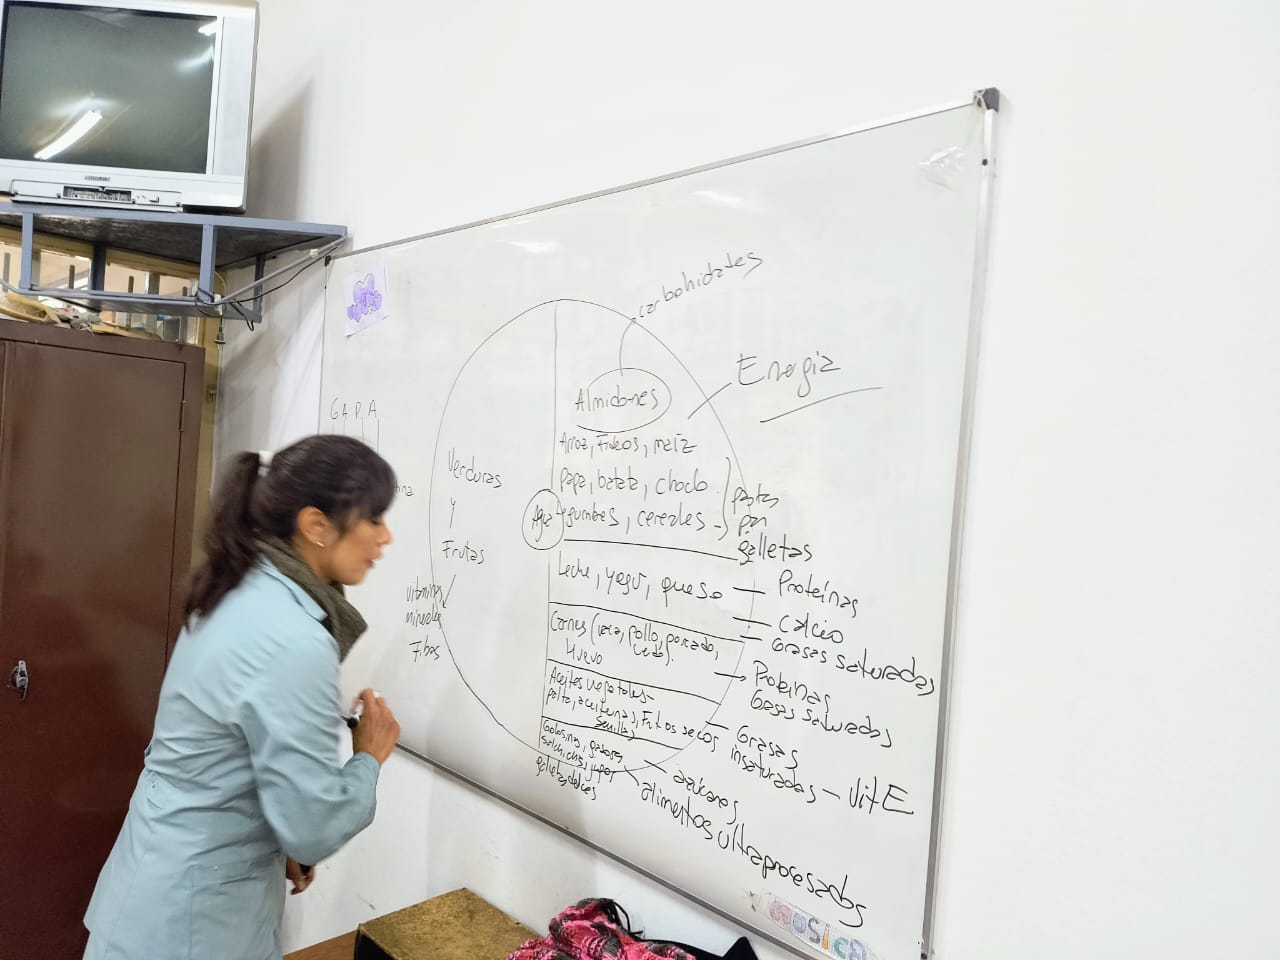 carbohidratos
Energia
Almidones
GAPA
Arroz, Fideos, maíz
papa, batata, choclo
legumbres, cereales
pastas
pan
galletas
Agua
Verduras
y
Frutas
vitaminas
minerales
Fibras
Leche, yogur, queso
Proteínas
calcio
Grasas saturadas
Carnes (vaca, pollo, pescado,
cerdo).
Huevo
Proteinas
Grasas saturadas
Aceites vegetales
palta, aceitunas, Frutos secos
Semillas
Grasas
insaturadas - Vit E
Golosinas,
galletas dulces
azúcares
alimentos ultraprocesados
MUSICA